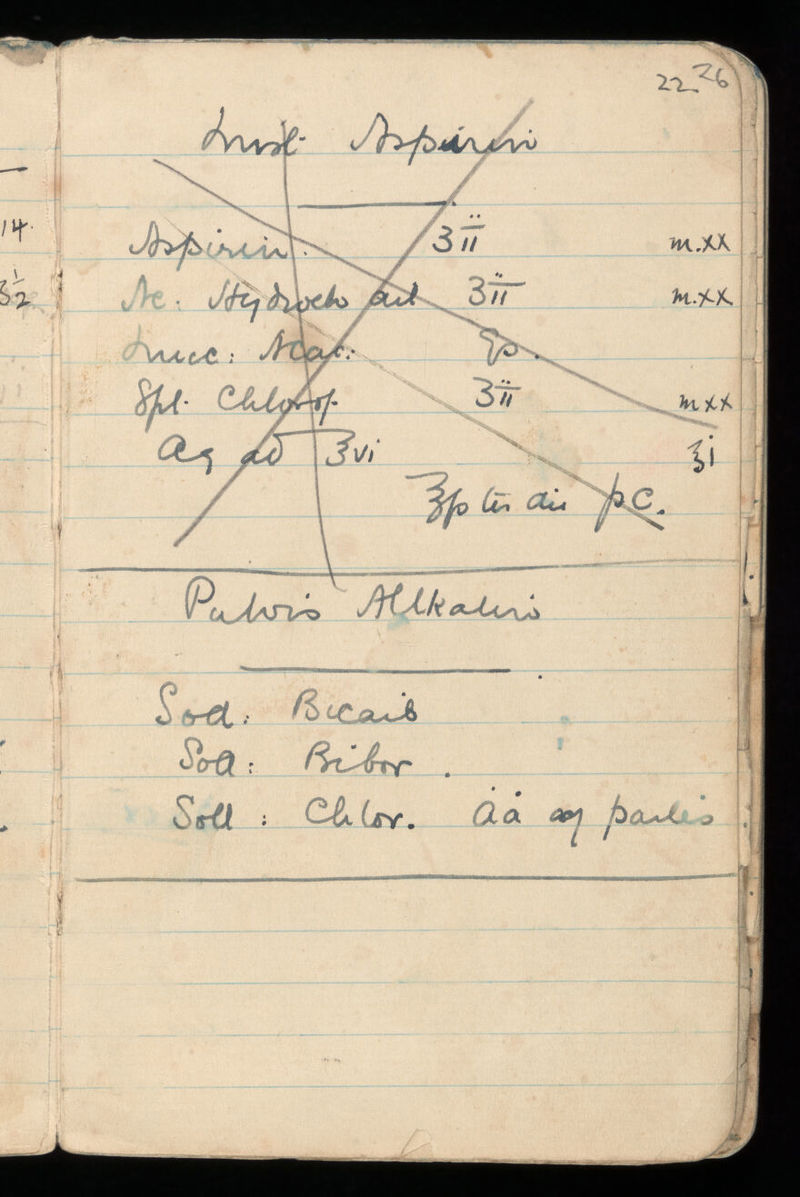 22 26
Mist. Aspirin
14.
Aspirin. ʒii m.xx
ʒ½
Ac: Hydroch dil ʒii m.xx
Mucc: Acac: qs.
Spt. Chlorof. ʒii mxx
Aq ad ℥vi ℥i
℥ss ter die pc.
Pulvis Allkalin
Sod: Bicarb
Sod: Bibor.
Sod: Chlor. āā aq partes